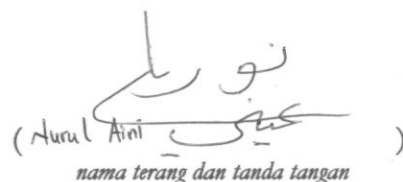 نور
عيني
( Nurul Aini )
nama terang dan tanda tangan